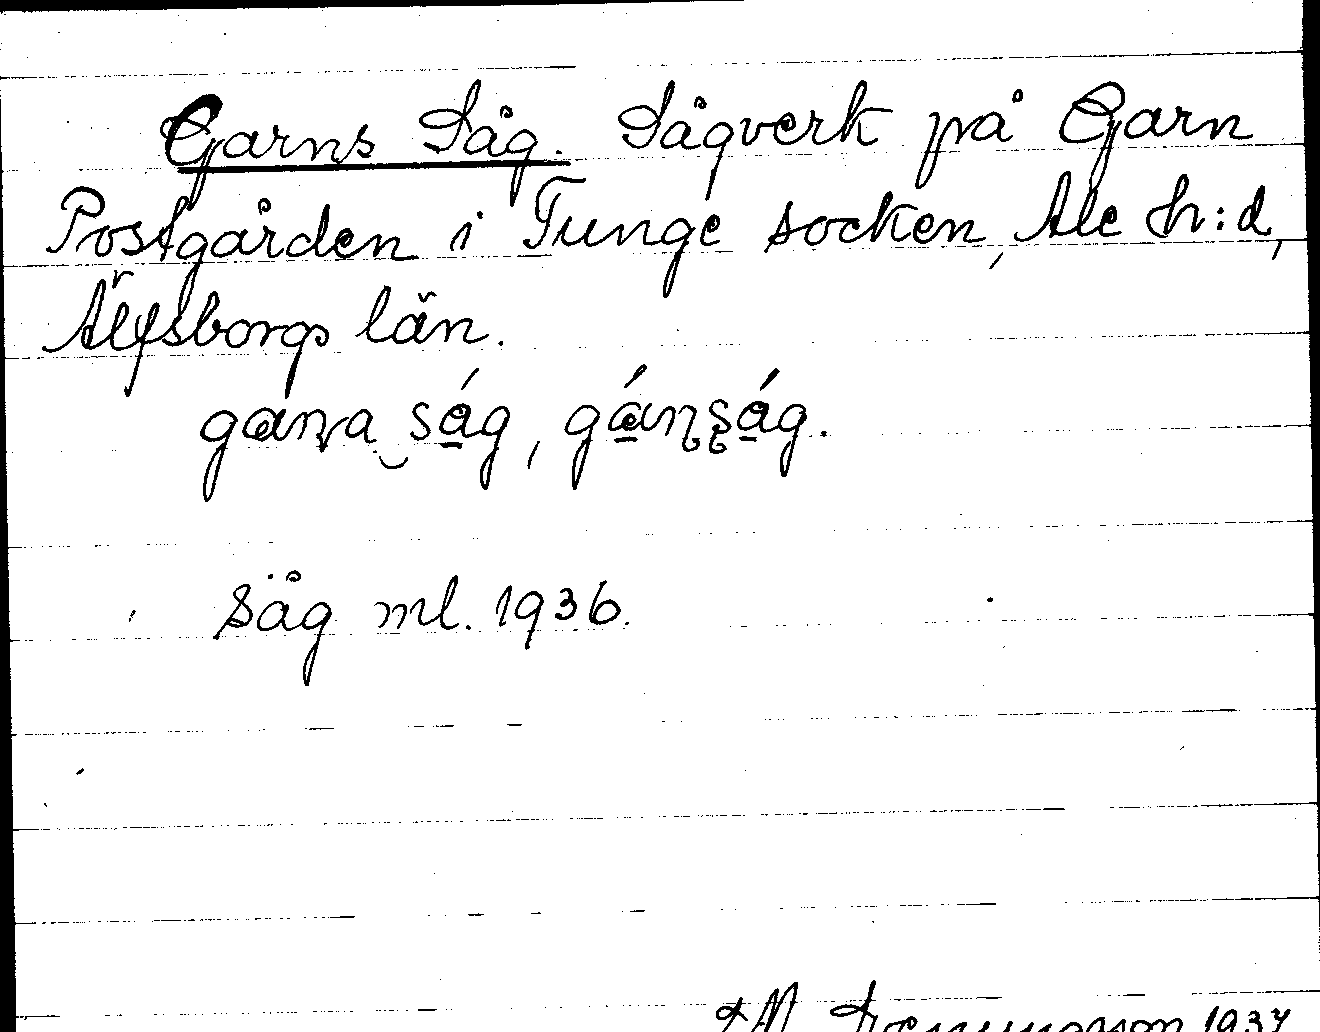 Garns Såg. Sågverk på Garn
Postgården i Tunge socken, Ale h:d,
Älfsborgs län.
gɑṇa ság, gáṇṣág.
såg ml. 1936.
1937